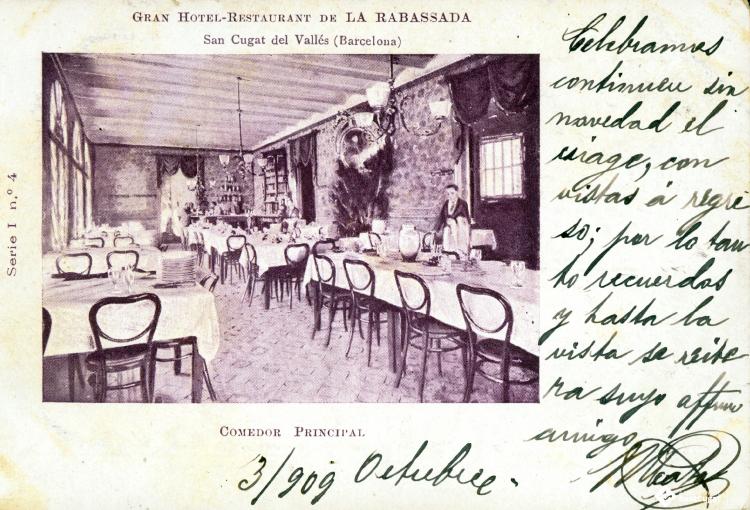 Gran Hotel-Restaurant de LA RABASSADA
San Cugat del Vallés (Barcelona)
Serie I n.º 4
Comedor Principal
Celebramos
continuen sin
novedad el
viage, con
vistas á regre
so; por lo tan
to recuerdos
y hasta la
vista se reite
ra suyo affmo
amigo
3/909 Octubre.